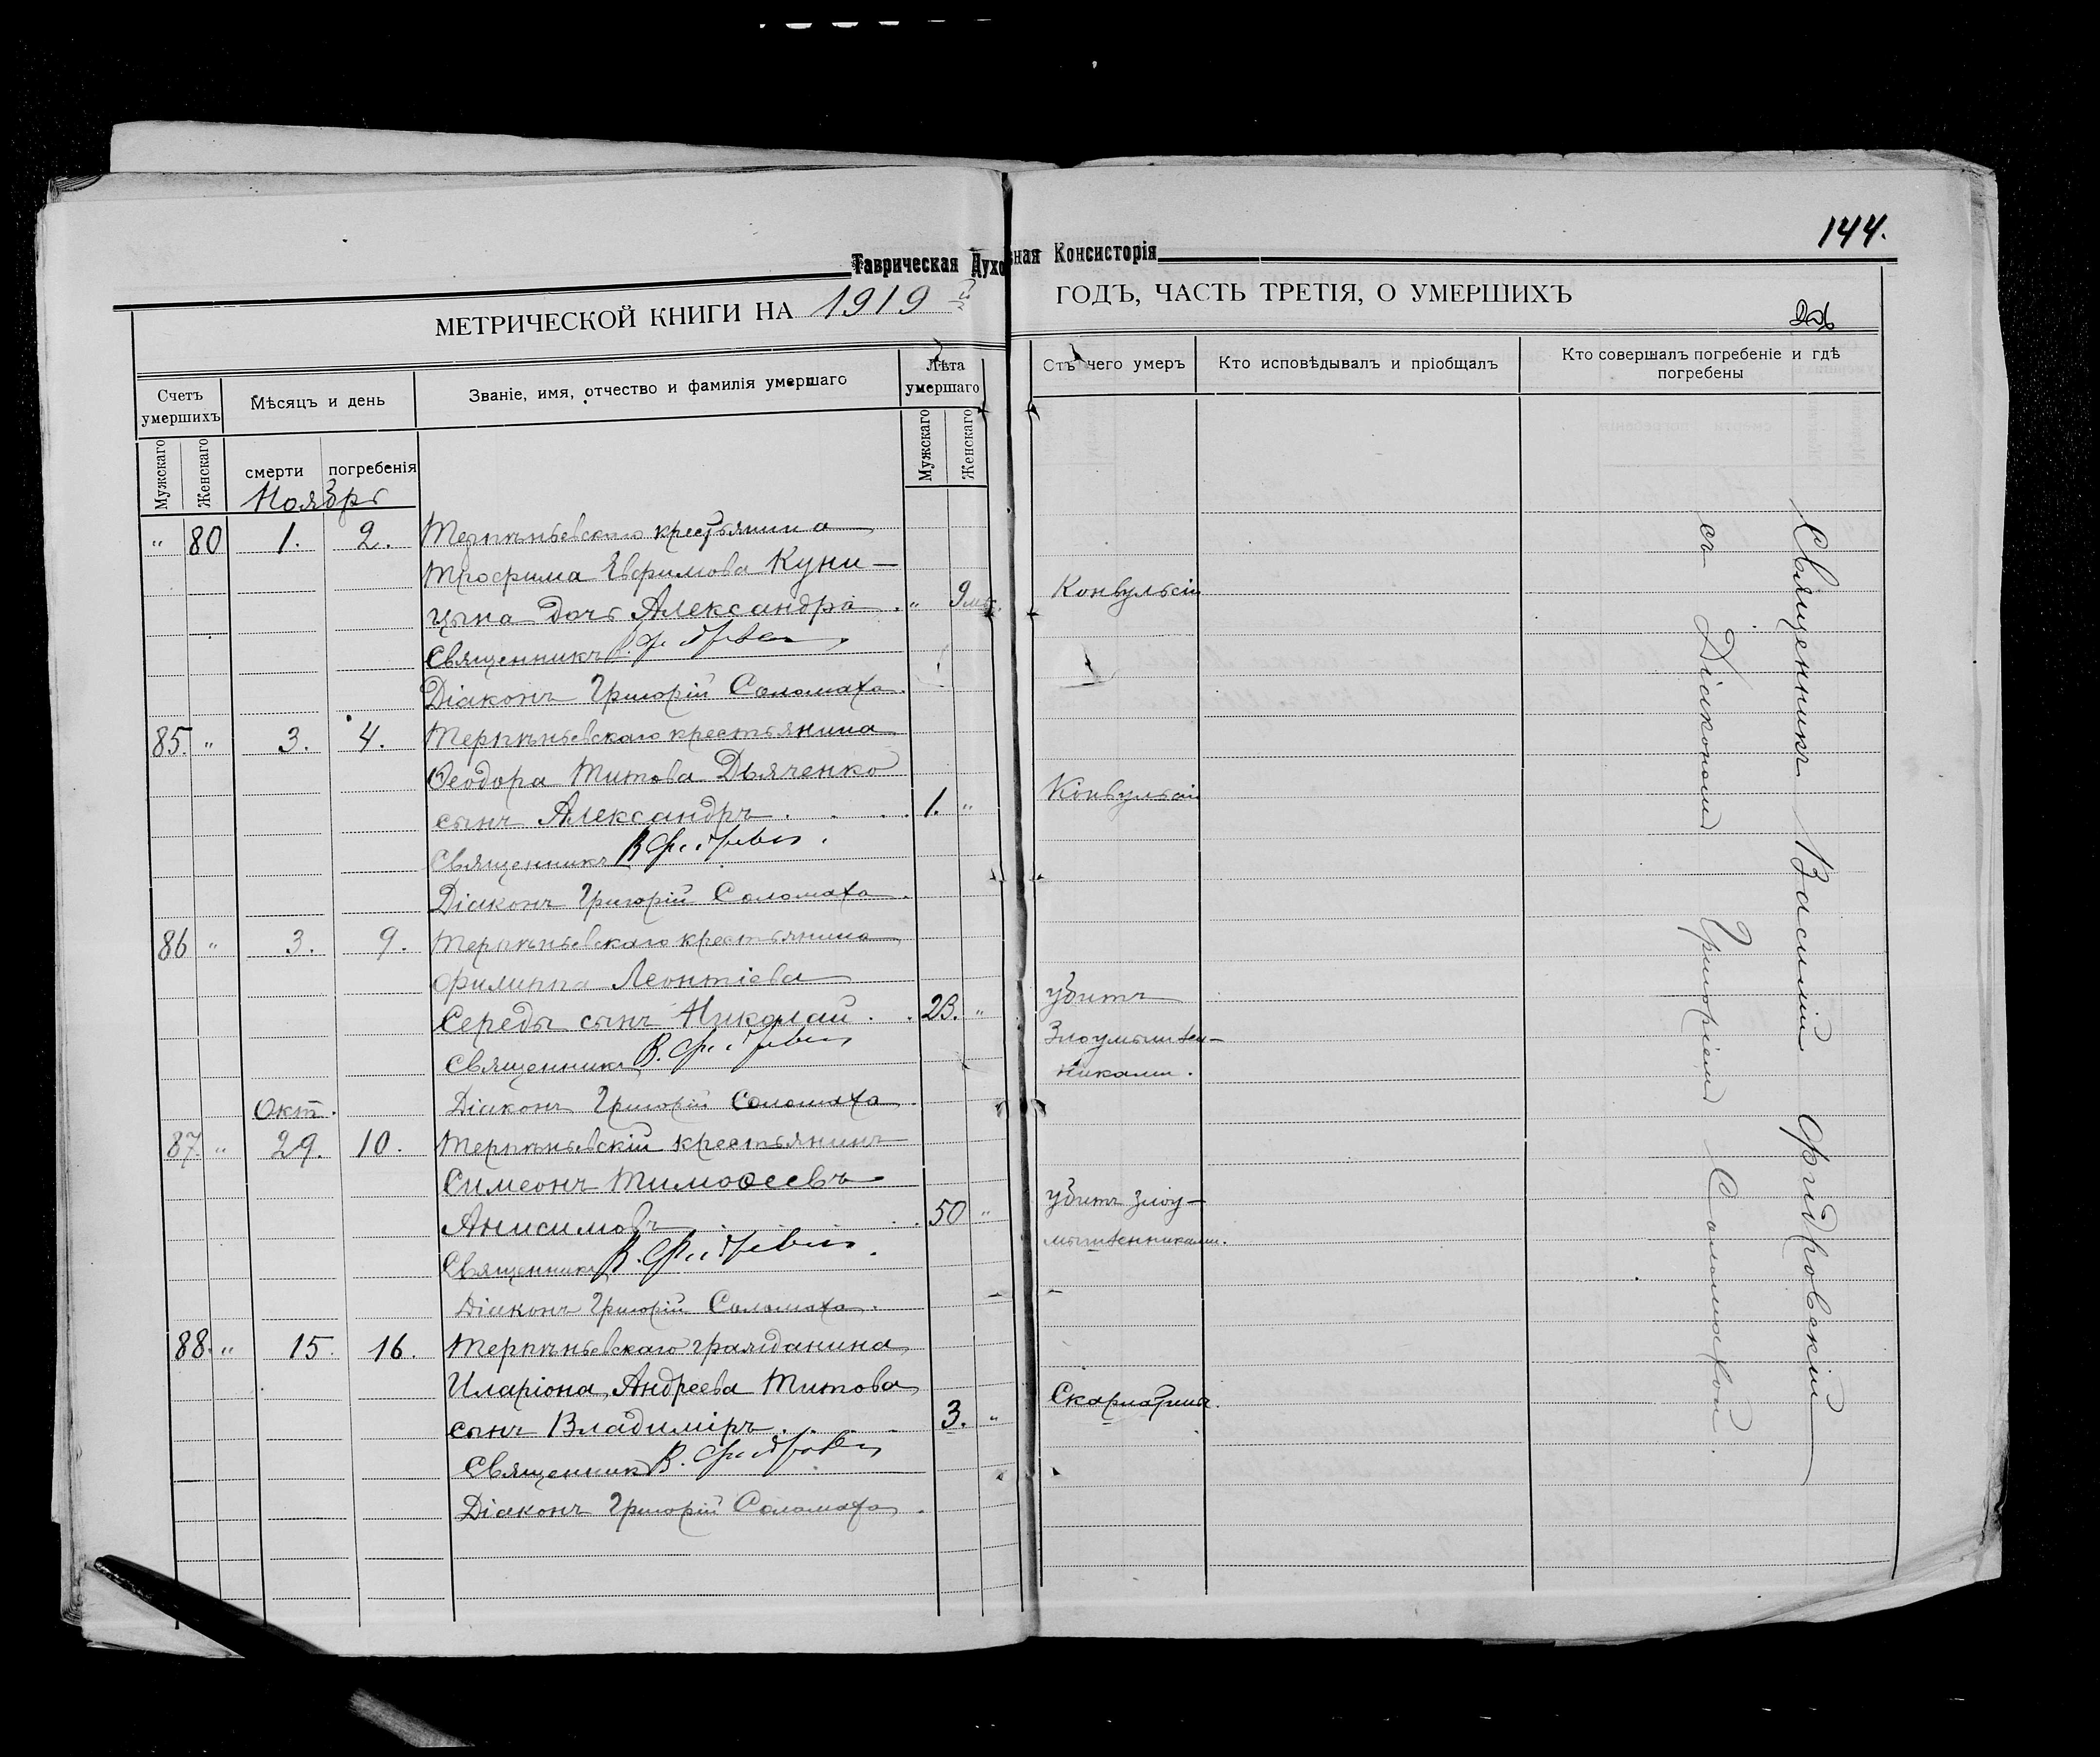 144.
Таврическая Духовная Консисторія
МЕТРИЧЕСКОЙ КНИГИ НА 1919 й ГОДЪ, ЧАСТЬ ТРЕТІЯ, О УМЕРШИХЪ
Счетъ умершихъ
Мѣсяцъ и день
Званіе, имя, отчество и фамилія умершаго
Лѣта умершаго
Отъ чего умеръ
Кто исповѣдывалъ и пріобщалъ
Кто совершалъ погребеніе и гдѣ погребены
Мужскаго
Женскаго
смерти
погребенія
Мужскаго
Женскаго
Ноябрь
" 80 1. 2. Терпѣньевскаго крестьянина
Трофима Евфимова Куни-
цына дочь Александра . " 9 мѣс. Конвульсіи
Священникъ В. Фидровскій
Діаконъ Григорій Соломаха.
85. " 3. 4. Терпѣньевскаго крестьянина
Ѳеодора Титова Дьяченко
сынъ Александръ . . . 1. " Конвульсіи
Священникъ В. Фидровскій
Діаконъ Григорій Соломаха.
86 " 3. 9. Терпѣньевскаго крестьянина
Филиппа Леонтіева
Середы сынъ Николай . . 23. " убитъ
Злоумышлен-
никами.
Священникъ В. Фидровскій
Окт.
Діаконъ Григорій Соломаха.
87. " 29. 10. Терпѣньевскій крестьянинъ
Симеонъ Тимоѳеевъ
Анисимовъ . . . 50 " убитъ злоу-
мышленниками.
Священникъ В. Фидровскій
Діаконъ Григорій Соломаха.
88. " 15. 16. Терпѣньевскаго гражданина
Иларіона Андреева Титова
сынъ Владиміръ . . . 3. " Скарлатина.
Священникъ В. Фидровскій
Діаконъ Григорій Соломаха.
Священникъ Василій Фидровскій
съ Діакономъ Григоріемъ Соломахой.